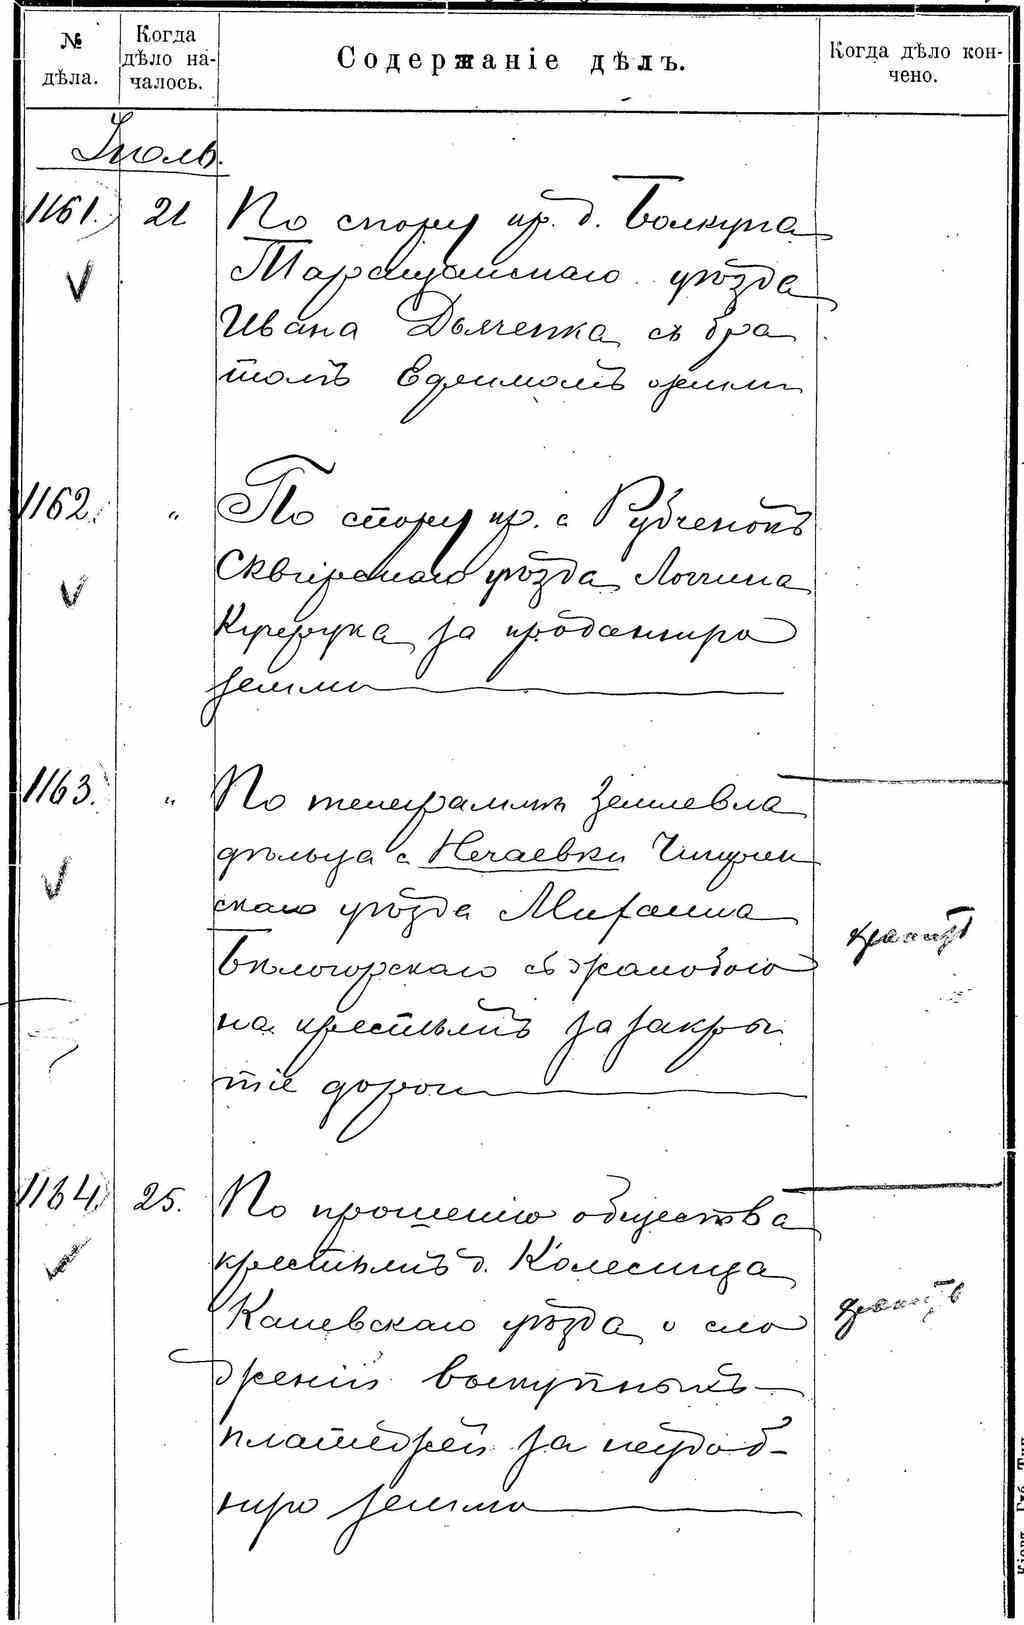 № дѣла.
Когда дѣло на-
чалось.
Содержаніе дѣлъ.
Когда дѣло кон-
чено.
Іюль.
1161. 21 По спору кр. д. Болкуна
Таращанскаго уѣзда
Ивана Дьяченка съ бра
томъ Ефимомъ о земли
1162. " По спору кр. с Рубченокъ
Сквирскаго уѣзда Логгина
Кучерука за проданную
землю
1163. " По телеграммѣ Землевла
дѣльца с Нечаевки Чигирин
скаго уѣзда Михаила
Бѣлогорскаго съ жалобою
на крестьянъ за закры
тіе дороги
1164. 25. По прошенію общества
крестьянъ д. Колесища
Каневскаго уѣзда о сло
женіи выкупныхъ
платежей за неудоб-
ную землю